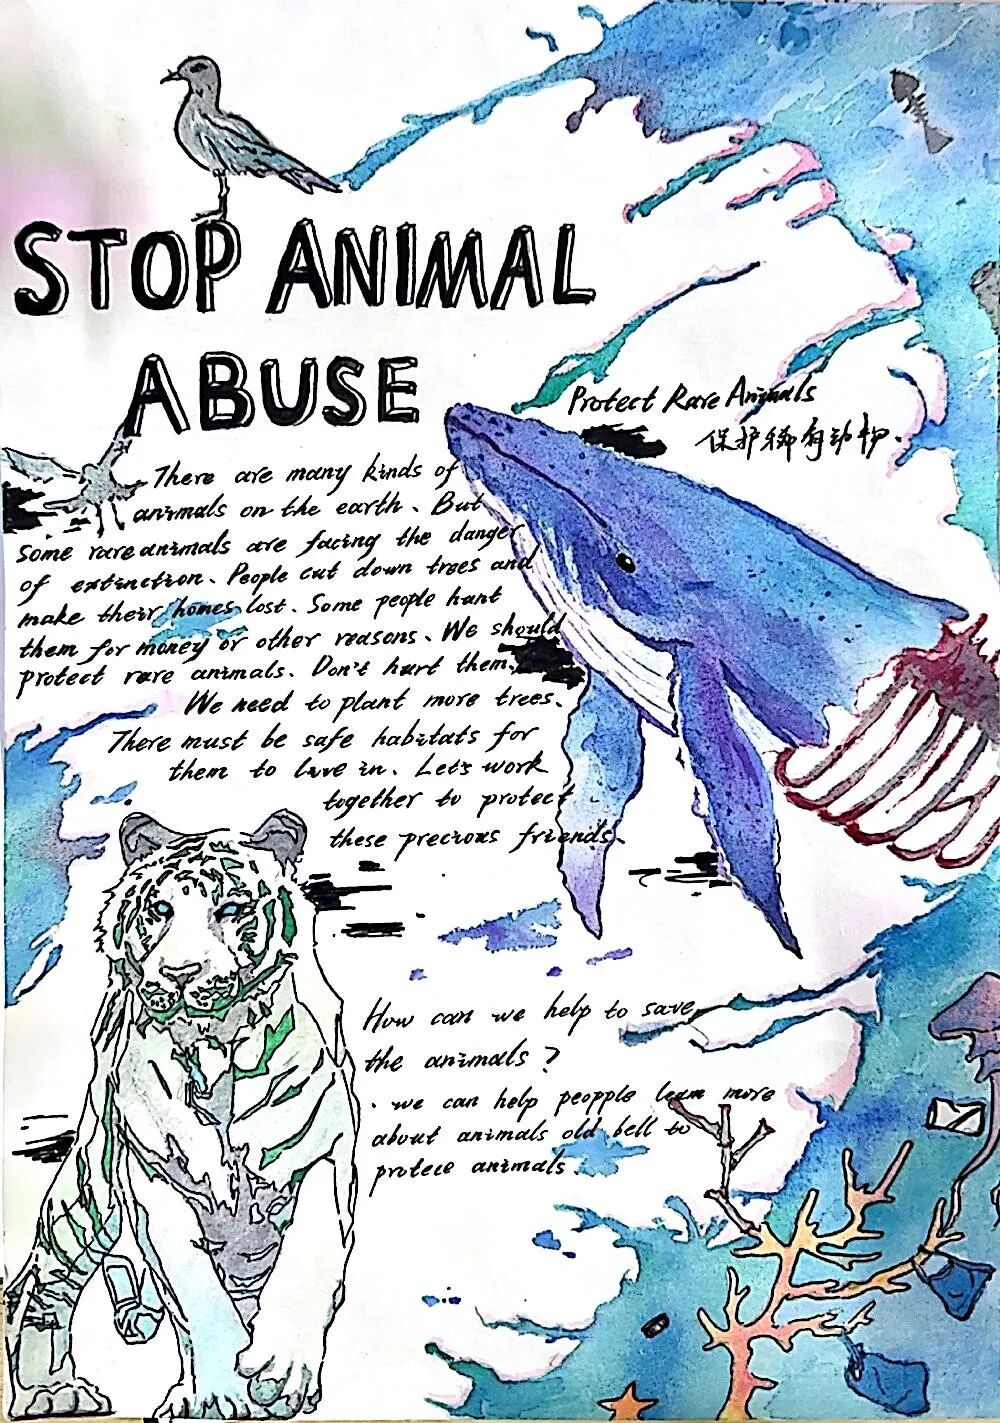 STOP ANIMAL
ABUSE
Protect Rare Animals
保护稀有动物.
There are many kinds of
animals on the earth. But
some rare animals are facing the danger
of extinction. People cut down trees and
make their homes lost. Some people hunt
them for money or other reasons. We should
protect rare animals. Don't hurt them.
We need to plant more trees.
There must be safe habitats for
them to live in. Let's work
together to protect
these precious friends.
How can we help to save
the animals?
. we can help peopple learn more
about animals old bell to
protece animals.